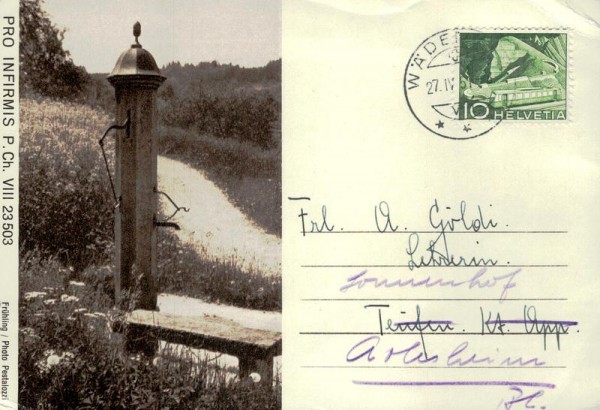 PRO INFIRMIS P. Ch. VIII 23503
Frühling / Photo Pestalozzi
WÄDE
27. IV
10 HELVETIA
Frl. A. Göldi.
Lehrerin.
Sonnenhof
Teufen. Kt. App.
Arlesheim
Bl.